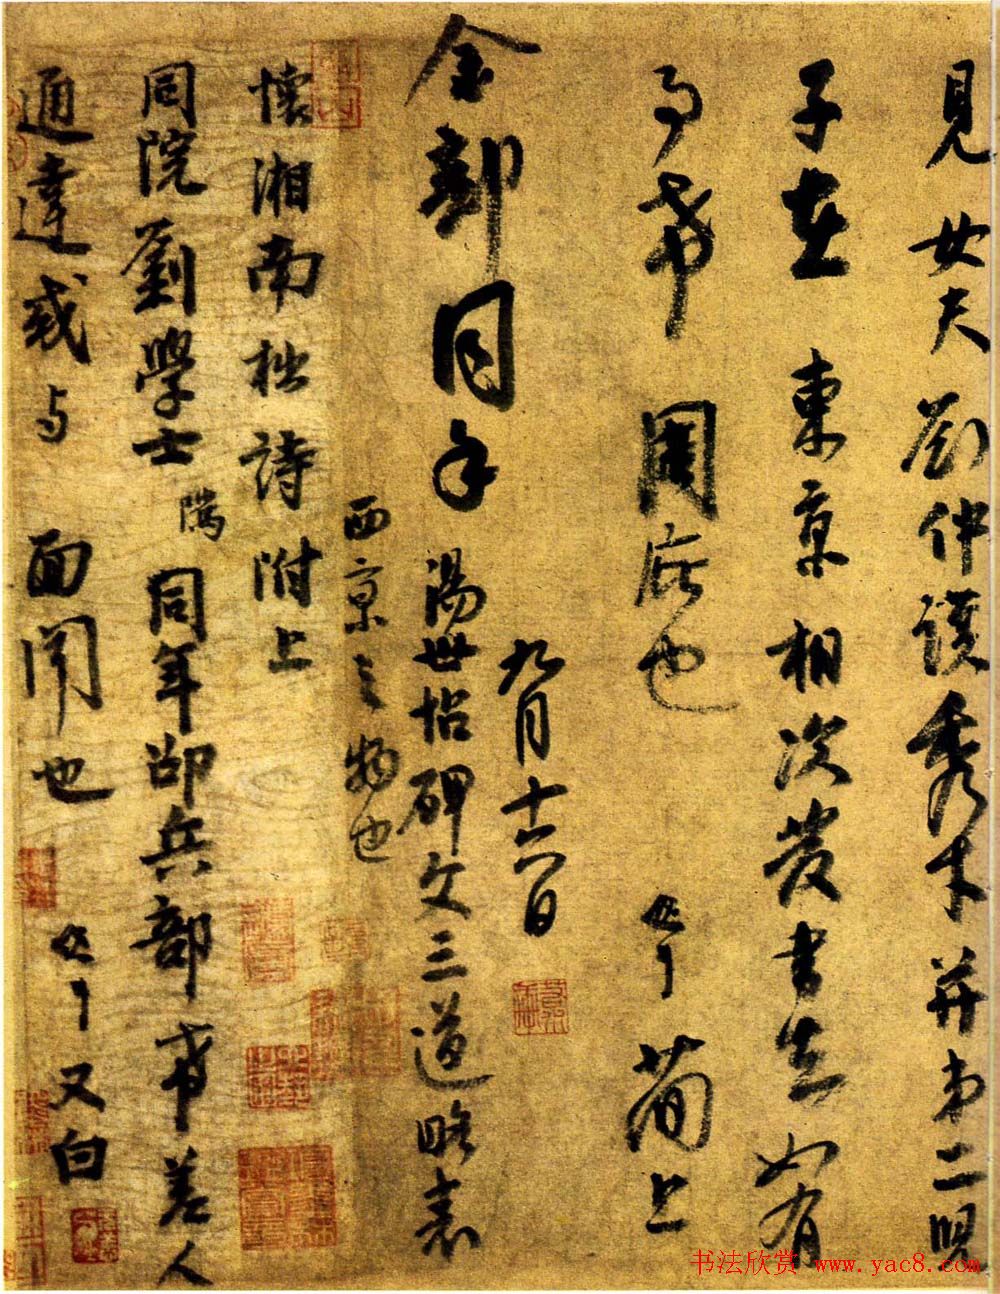 見 女夫劉仲謨秀才并弟二児
子在 東京相次發書去如有
事希 周庇也 簡上
金部同年 九月十六日
湯世怡碑文三道略表
西京之物也
懷湘南拙詩附上
同院劉學士 同年邵兵部 希差人
通達或与 面聞也 又白
书法欣赏 www.yac8.com